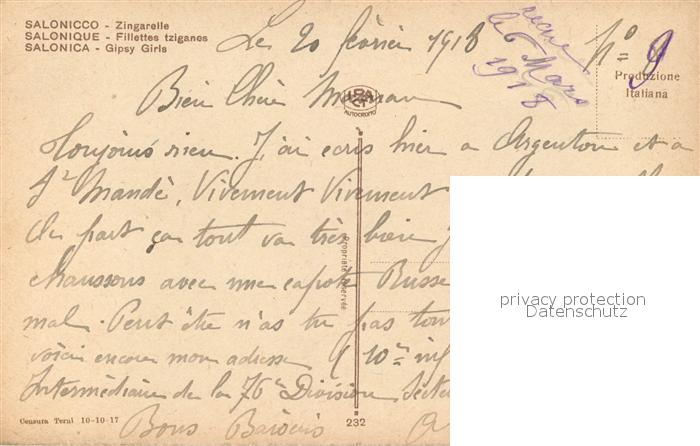 SALONICCO - Zingarelle
SALONIQUE - Fillettes tziganes
SALONICA - Gipsy Girls
Le 20 février 1918
reçue
le 6 Mars
1918
N° 9
Produzione
Italiana
Bien Chère Maman
AUTOCROMO
Toujours rien. J'ai ecris hier a Argenton et a
St Mandé, Vivement Vivement
De part ça tout va très bien
chaussons avec une capote Russe
mal. Peut être n'as tu pas
voici encore mon adresse (10e inf
Intermédiaire de la 76e Division Secteu
Bons Baisers
Proprietà riservata
Censura Terni 10-10-17
232
privacy protection
Datenschutz